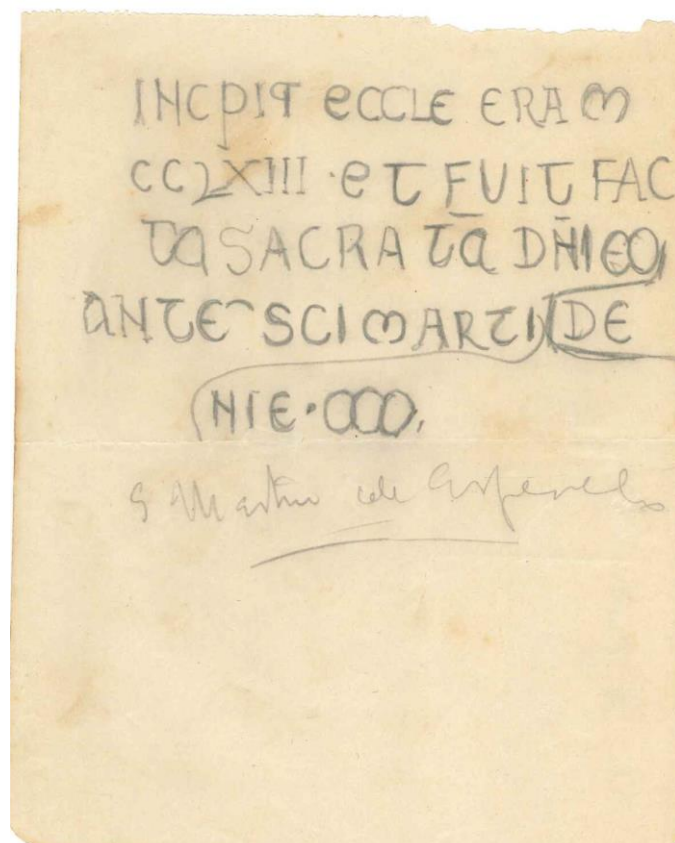 INCPIT ECCLE ERA M
CCLXIII · ET FUIT FAC
TA SACRATA DNICO
ANTE SCI MARTINI DE
NIE · OOO,
S Martin de